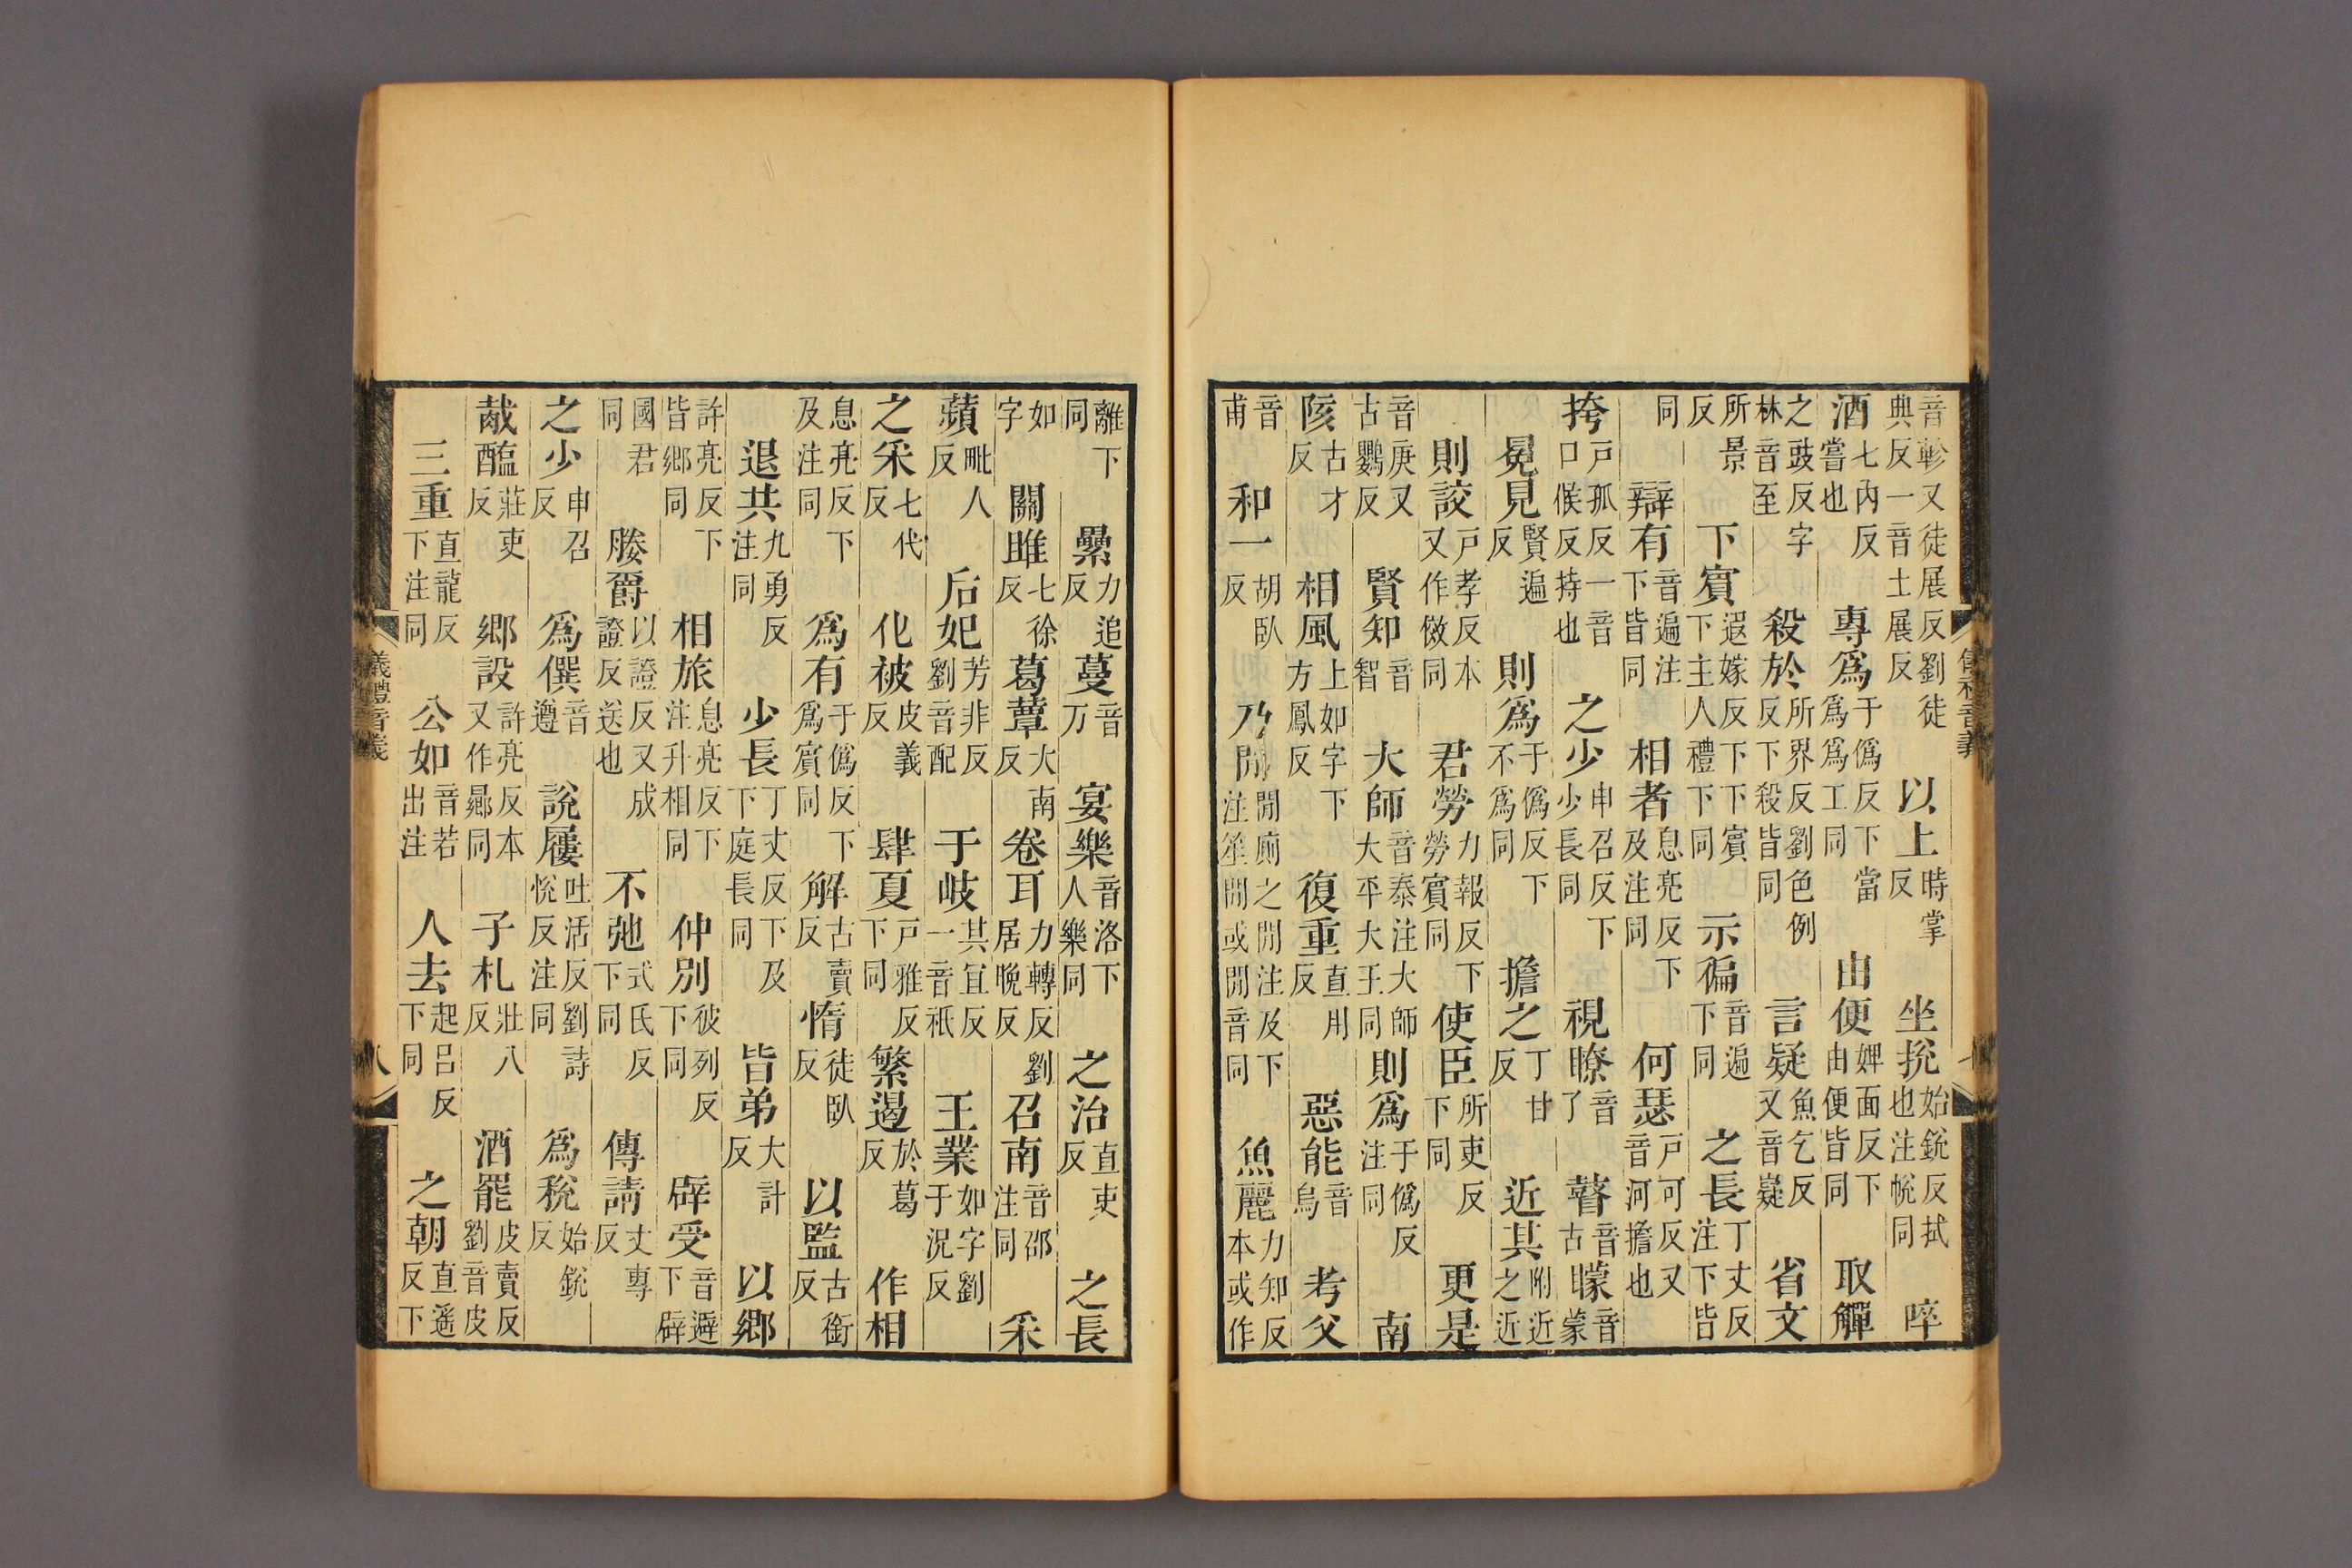 音軫又徒展反劉徒典反一音土展反以上時掌反坐挩始銳反拭也注帨同啐
酒七內反嘗也專爲于僞反下當爲爲工同由便婢面反下由便皆同取觶
之豉反字林音至殺於所界反劉色例反下殺皆同言疑魚乞反又音嶷省文
所景反下賓遐嫁反下下賓下主人禮下同示徧音遍下同之長丁丈反注下皆
同辯有音遍注下皆同相者息亮反下及注同何瑟戸可反又音河擔也
挎戸孤反一音口候反持也之少申召反下少長同視瞭音了瞽音古矇音蒙
冕見賢遍反則爲于僞反下不爲同擔之丁甘反近其附近之近
則詨戸孝反本又作傚同君勞力報反下勞賓同使臣所吏反下同更是
音庚又古鸚反賢知音智大師音泰注大師大平大王同則爲于僞反注同南
陔古才反相風上如字下方鳳反復重直用反惡能音烏考父
音甫和一胡臥反乃閒閒廁之閒注及下注笙閒或閒音同魚麗力知反本或作
儀禮音義
離下同纍力追反蔓音万宴樂音洛下人樂同之治直吏反之長
如字關雎七徐反葛蕈大南反卷耳力轉反劉居晚反召南音邵注同采
蘋毗人反后妃芳非反劉音配于岐其宜反一音祇王業如字劉于況反
之采七代反化被皮義反肆夏戸雅反下同繁遏於葛反作相
息亮反下及注同爲有于僞反下爲賓同解古賣反惰徒臥反以監古銜反
退共九勇反注同少長丁丈反下及下庭長同皆弟大計反以鄉
許亮反下皆鄉同相旅息亮反下注升相同仲別彼列反下同辟受音避下辟
國君同媵爵以證反又成證反送也不弛式氏反下同傳請丈專反
之少申召反爲僎音遵說屨吐活反劉詩悅反注同爲稅始銳反
胾醢莊吏反鄉設許亮反本又作曏同子札壯八反酒罷皮賣反劉音皮
三重直龍反下注同公如音若出注人去起呂反下同之朝直遙反下
儀禮音義
八